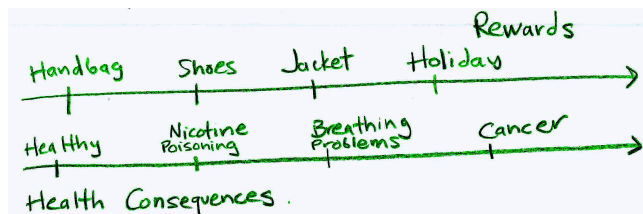 Rewards
Handbag Shoes Jacket Holiday
Healthy Nicotine Poisoning Breathing Problems Cancer
Health Consequences.